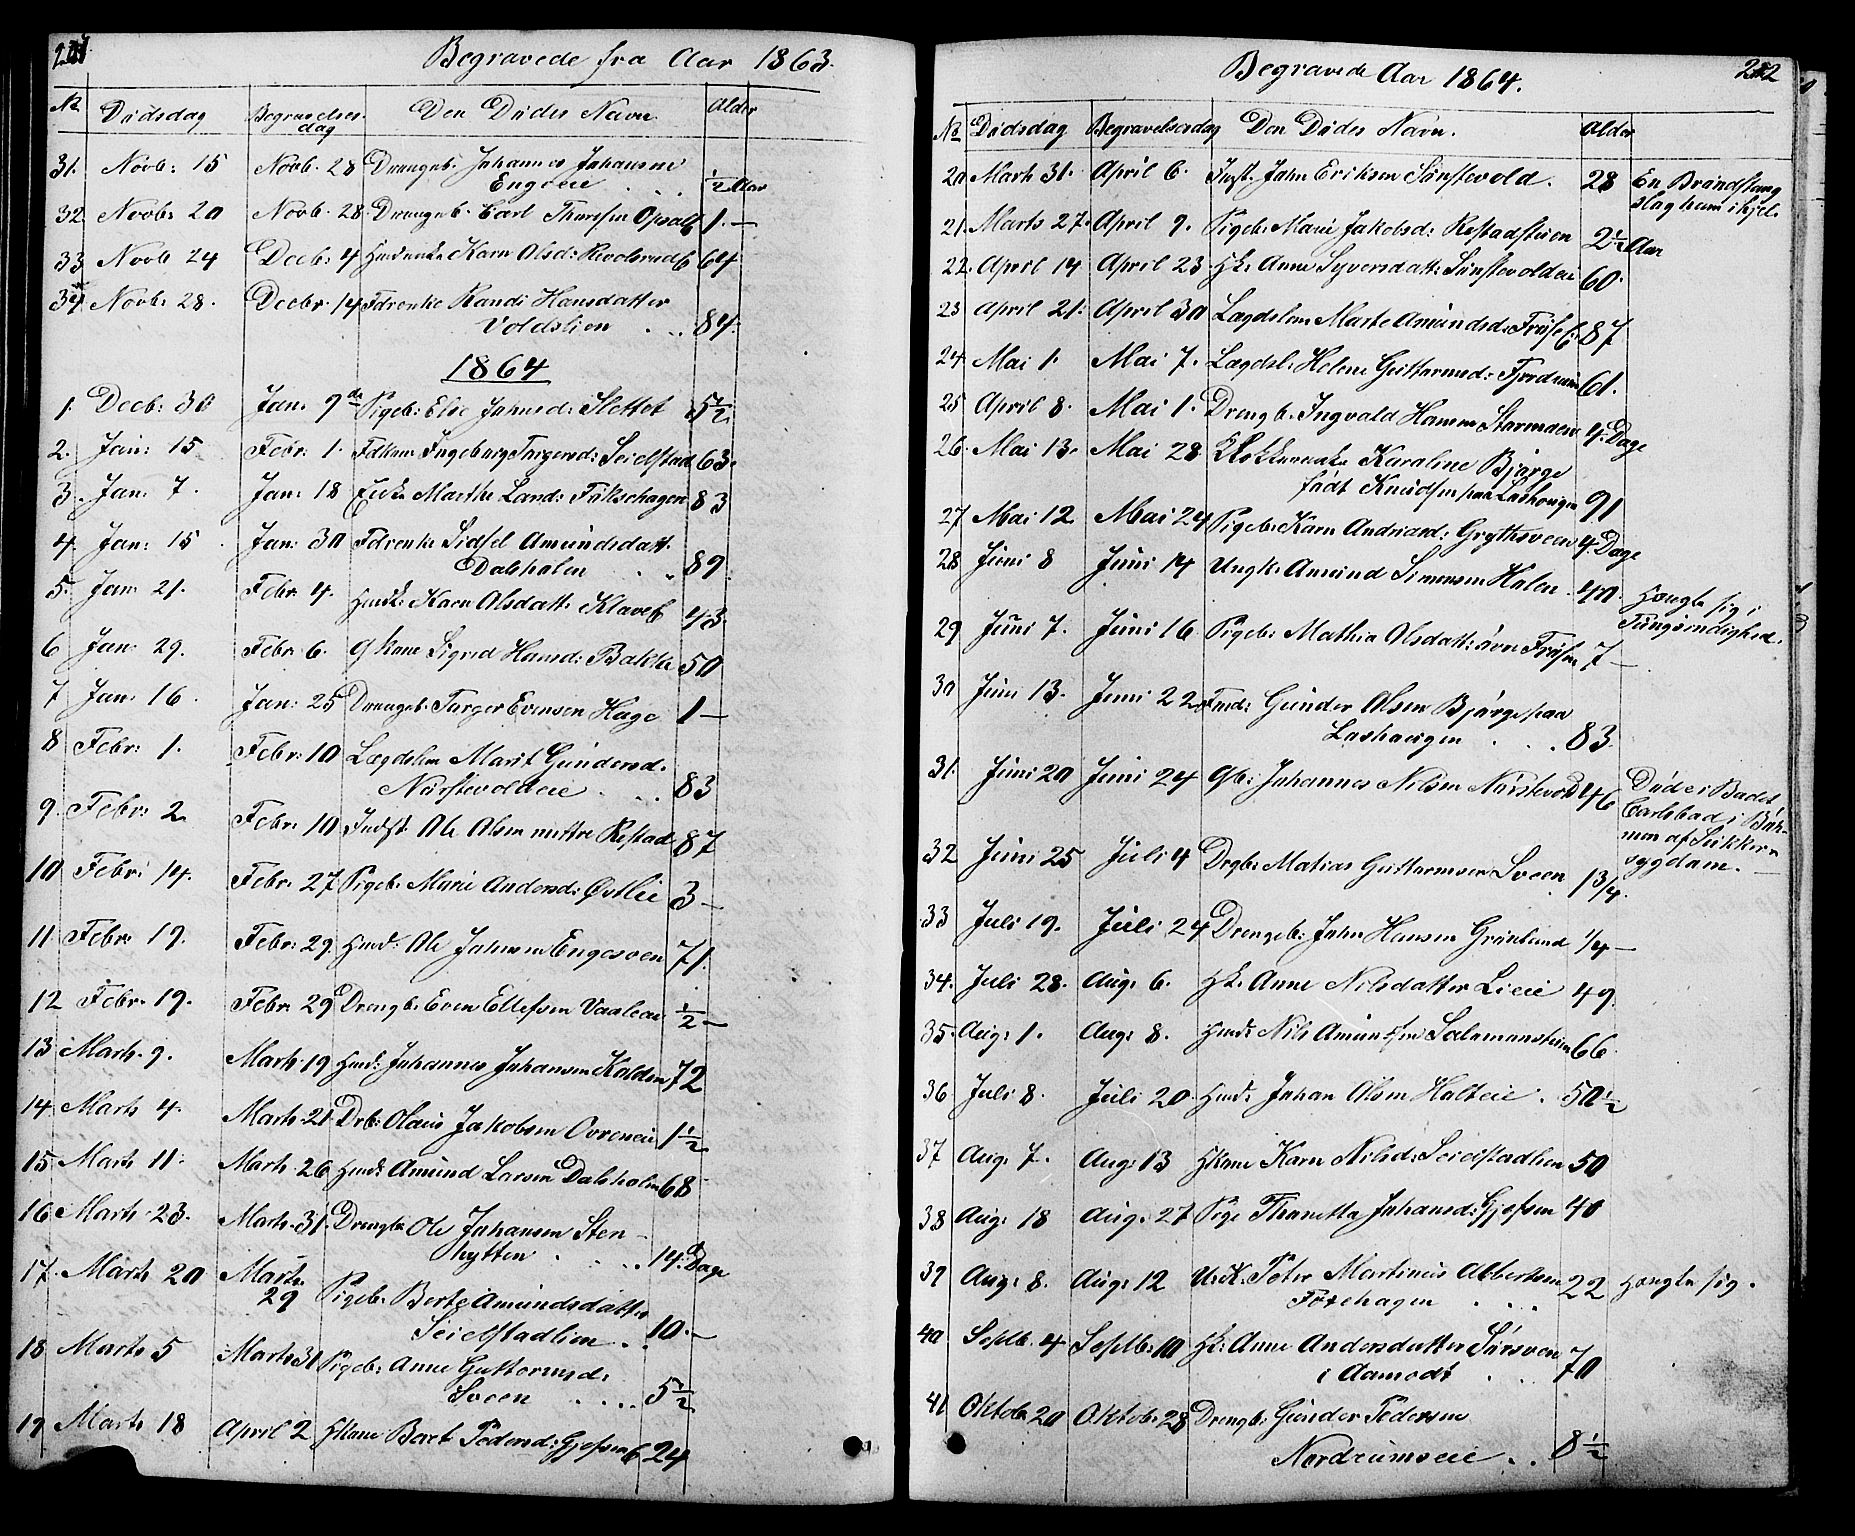 Begravede fra Aar 1863.
No Dödsdag Begravelsesdag Den Dödes Navn Alder
31. Novb: 15 Novb. 28 Drengeb. Johannes Johansen
Engeeie ½ Aar
32 Novb: 20 Novb. 28 Drengeb. Carl Opsal 1.—
33 Novb 24 Decb: 4 Karn Olsd: 64
34 Novb: 28. Decbr. 14 Fdrenke Randi Hansdatter
Voldslien 84.
1864
1. Decb: 30 Jan. 9de Pigeb: Else Johnsd: Slettet 5½
2. Jan: 15 Febr: 1. Fdkone Ingeborg Seielstad 63.
3. Jan. 7. Jan: 18 Enke Marthe Fökschagen 83
4. Jan: 15. Jan: 30 Fdrenke Sidsel Amundsdatt.
Dalsholen 89
5. Jan. 21. Febr. 4. Karn Olsdatt: 43
6 Jan. 29. Febr. 6. Gkone Sigrid Hansd: Bakke 50
7 Jan. 16. Jan: 25 Drengeb. Torger Evensen Hage 1—
8 Febr: 1. Febr: 10 Lægdslem Marit Gundersd.
Nörstevoldeie 83
9. Febr: 2. Febr. 10 Indst. Ole Olsen Restad 87
10 Febr: 14. Febr. 27 Pigeb. Marie Andersd: Østlie 3—
11. Febr. 19. Febr: 29. Hmd: Ole Johnsen Engesveen 71.
12 Febr. 19. Febr. 29 Drengb: Even Ellefsen ½—
13 Marts. 9. Marts. 19 Hmd: Johannes Johansen 72
14. Marts 4. Marts. 21 Drb: Olaus Jakobsen 1½
15 Marts 11. Marts. 26 Hmd: Amund Larsen Dalsholen 68
16 Marts. 23. Marts. 31. Drengb. Ole Johansen Sten-
hytten 14. Dage
17. Marts 20 Marts. 29 Pigeb. Berte Amundsdatter
Seielstadlien 10.—
18 Marts 5 Marts 31 Pigeb: Anne Guttormsd:
Sveen 5½
19 Marts 18 April 2 Hkone Pedersd: 24
Begravede Aar 1864. 222
No Dödsdag Begravelsesdag Den Dödes Navn. Alder
20 Marts 31. April 6. Inst. John Eriksen Sönstevold. 28 En Brandstang
slog ham ihjel.
21. Marts 27. April 9. Pigeb: Marie Jakobsd: 2½ Aar
22. April 14 April 23 Hk: Anne Syversdatt: Sönstevoldeie 60.
23 April 21: April 30 Lægdslem Marte Amundsd: 87
24. Mai 1. Mai 7. Lægdsl: Helene Guttormsd: 61.
25 April 8. Mai 1. Drengb. Ingvald Hansen 4. Dage
26. Mai 13. Mai 28 Klokkerenke Karoline Bjørge
födt Knudsen paa 91
27 Mai 12 Mai 24 Pigeb: Karn Andreasd: Grythsveen 4 Dage
28 Juni 8 Juni 14 Ungk: Amund Simensen Holen 40. Hængte sig i
Tungsindighed.
29 Juni 7. Juni 16 Pigeb: Mathia Olsdatt: övre Fröisen 7—
30 Juni 13. Juni 22 Gunder Olsen Bjørge paa
83.
31. Juni 20 Juni 24 Gb: Johannes Nilsen Nörstevold 46 Döde i Badet
Carlsbad i Böh-
men af Sukker-
sygdom.
32 Juni 25 Juli 4 Drgb: Matias Guttormsen Sveen 1¾.
33 Juli 19. Juli 24 Drengeb: John Hansen Grönlund ¼—
34. Juli 28. Aug: 6. Hk. Anne Nilsdatter Lieie 49.
35. Aug: 1. Aug: 8. Hmd: Nils Amundsen 66.
36 Juli 8. Juli 20. Hmd: Johan Olsen Holteie 50½
37 Aug. 7. Aug: 13 Hkone Karn Nilsd: Seielstadlien 50
38 Aug: 18 Aug. 27 Pige Thonette Johansd: 40
39 Aug: 8. Aug: 12 U.K. Peter Martinus Albertsen
22 Hængte sig.
40 Septb. 4 Septb: 10 Hk: Anne Andersdatter Sörsveen
i Aamodt 70
41 Oktob. 20 Oktob. 28 Drengb: Gunder Pedersen
Nordrumseie 8½